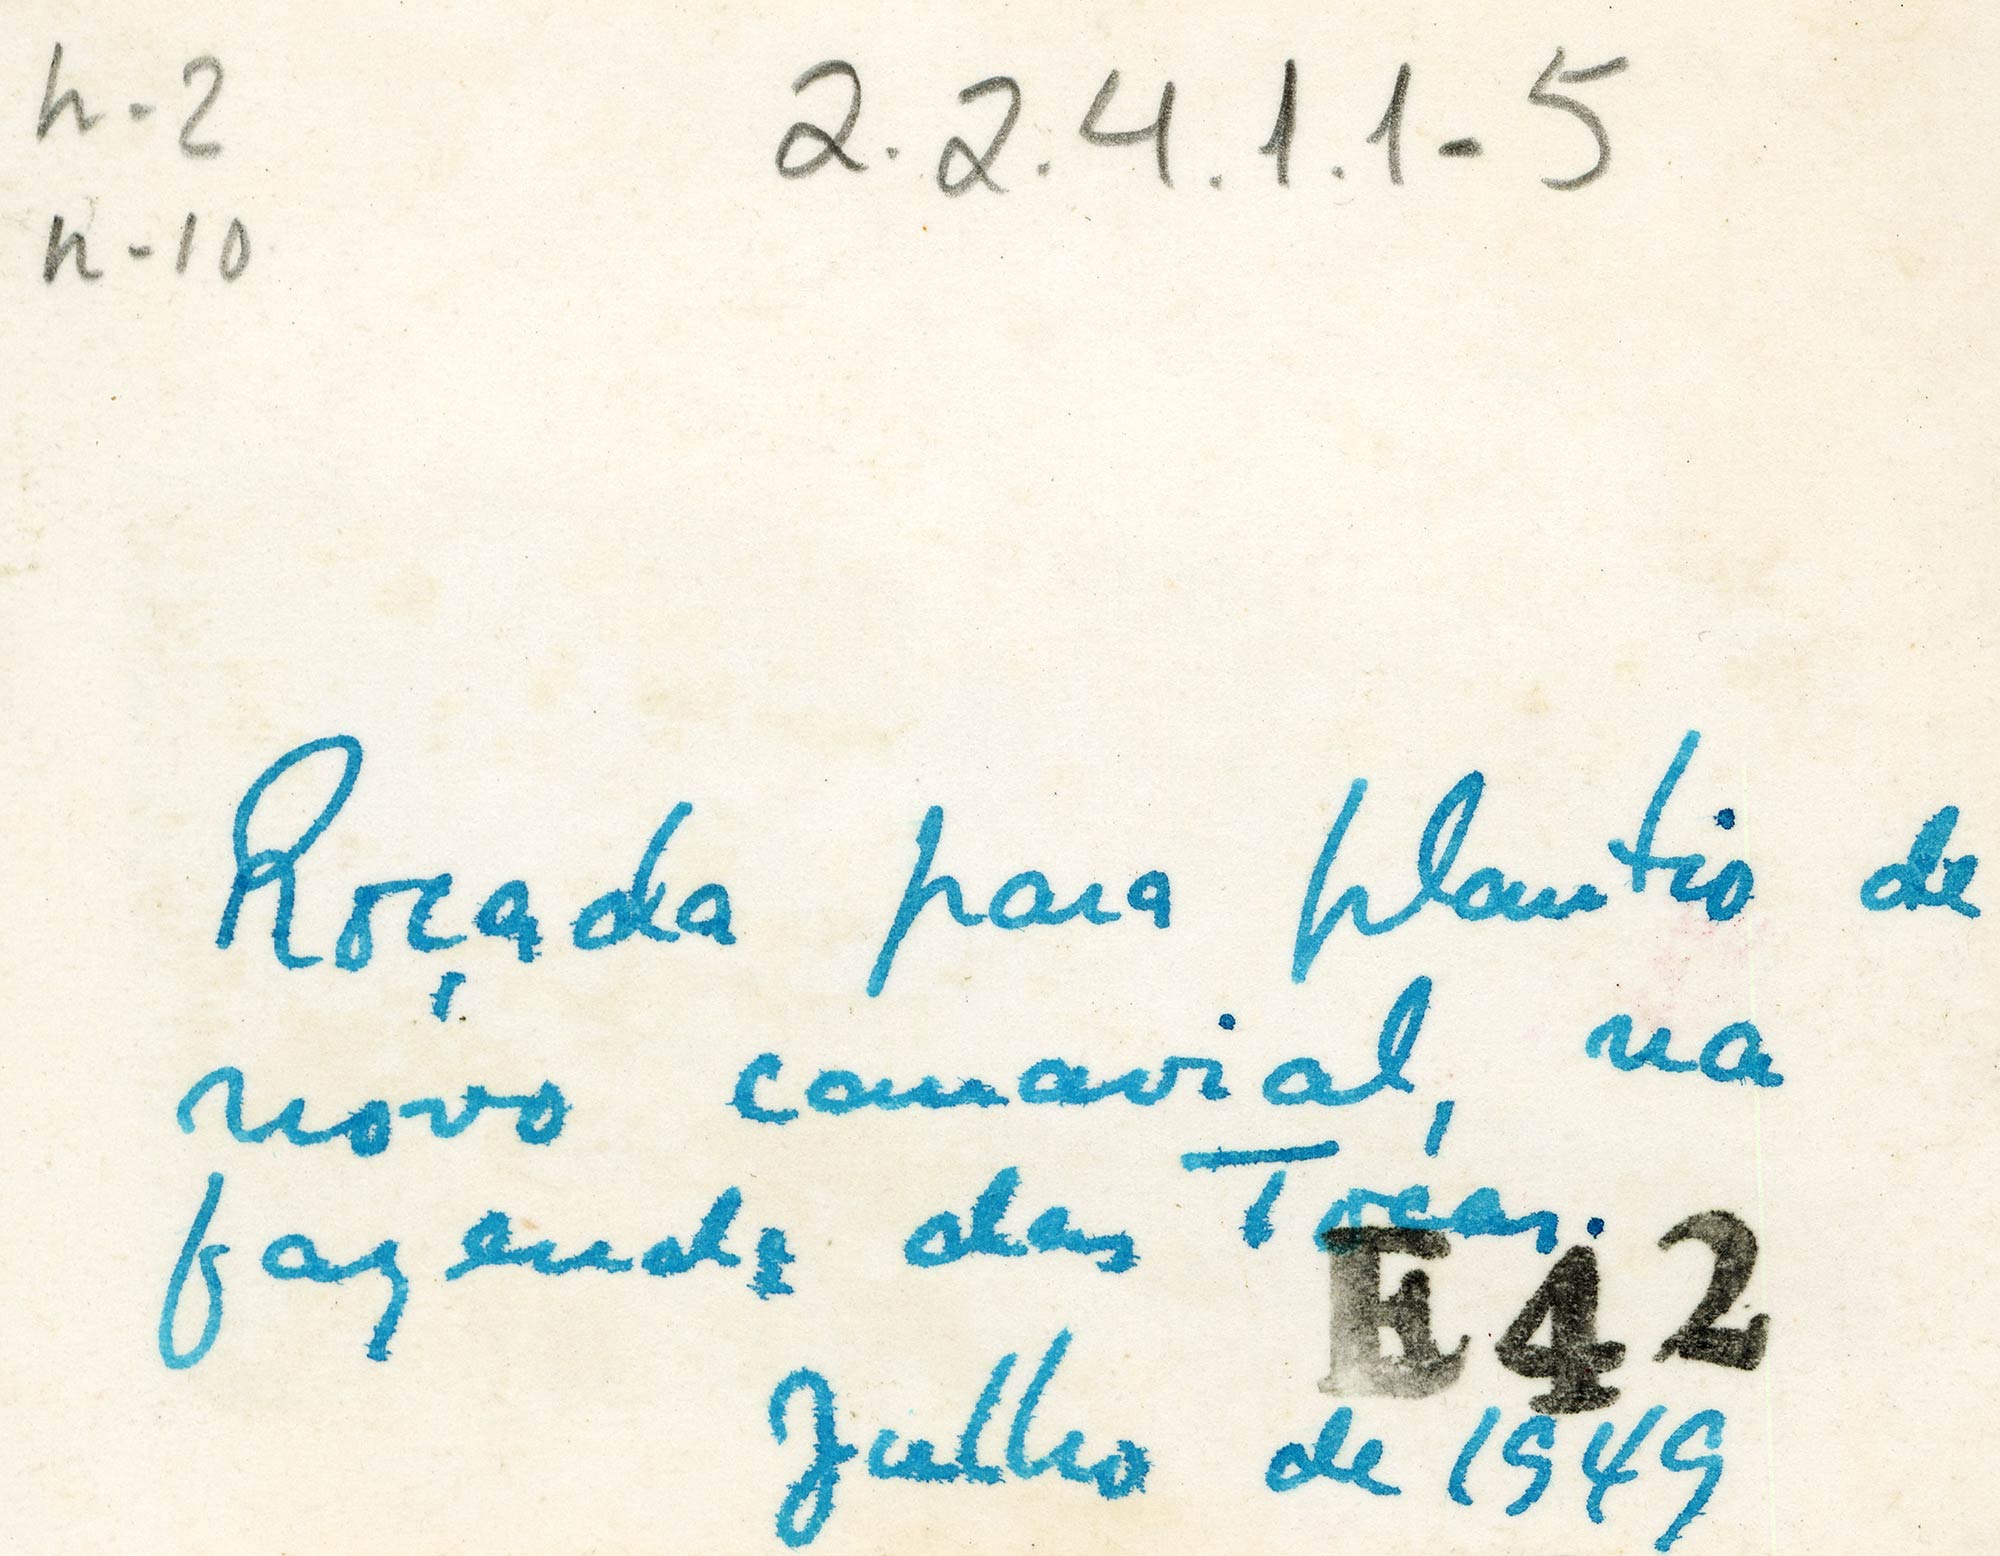 h-2
2.2.4.1.1-5
n-10
Roçada para plantio de
novo canavial, na
fazenda das Tocas.
E42
Julho de 1949